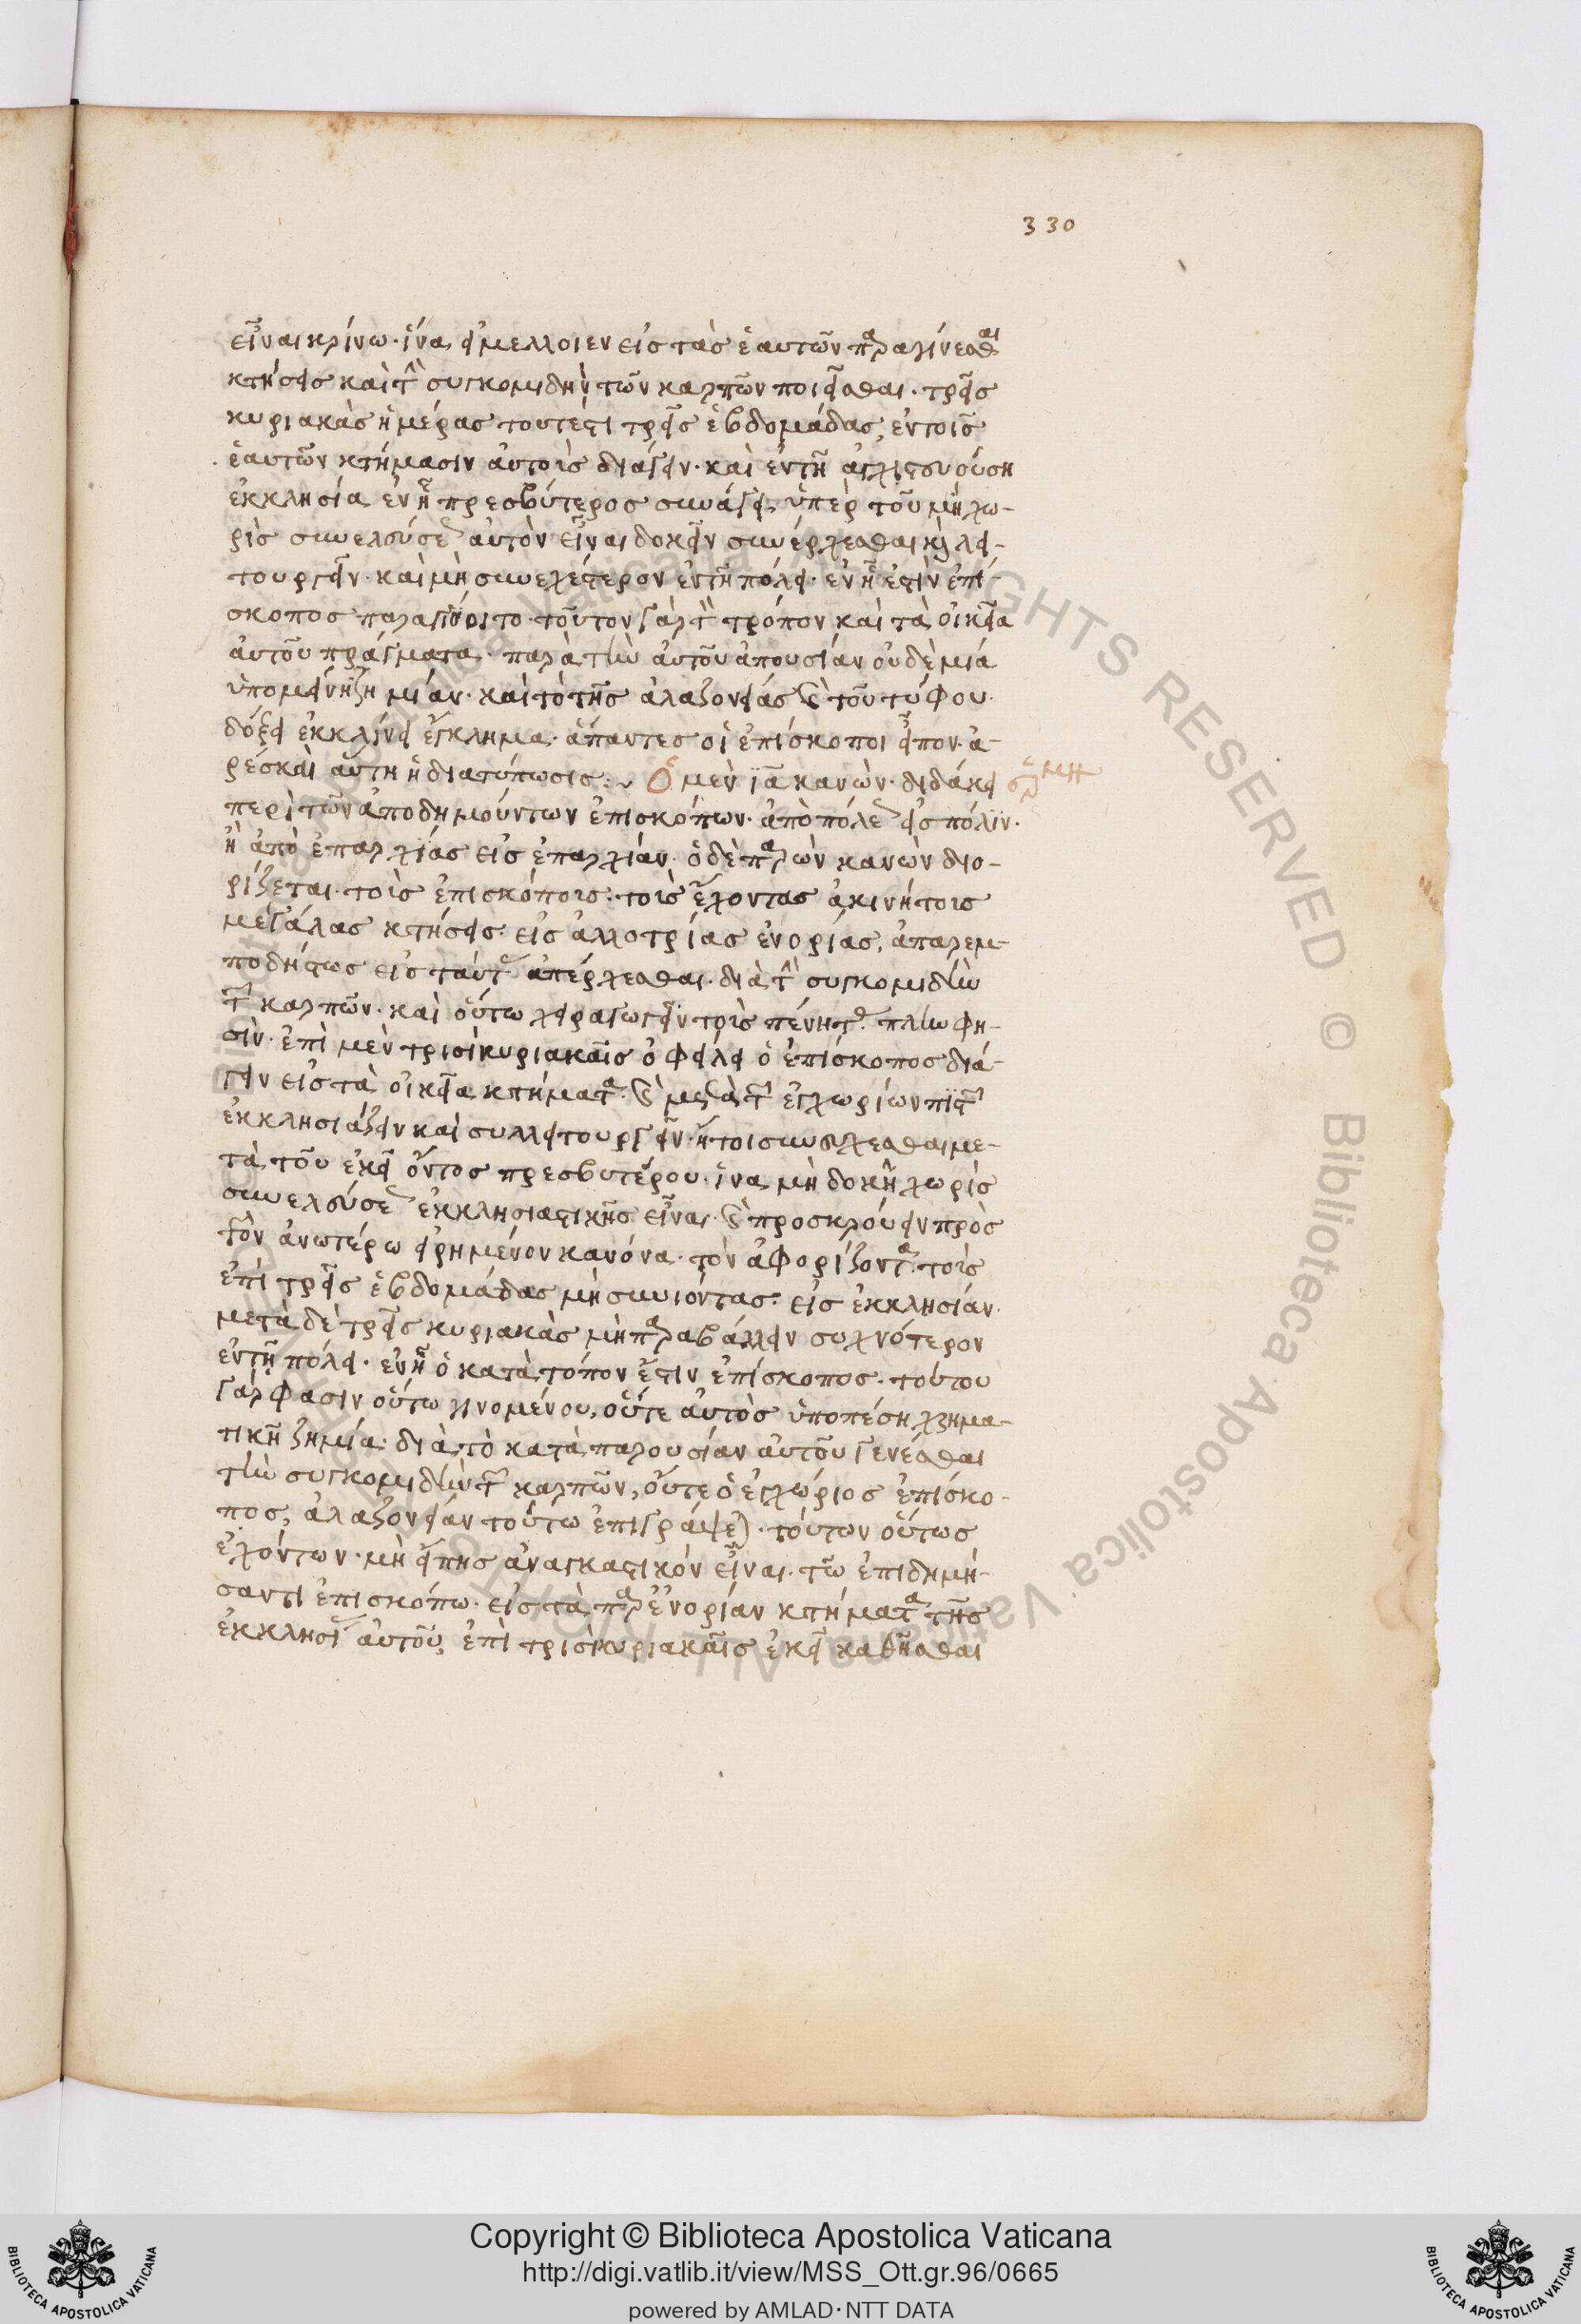 330
εἶναι κρίνω· ἵνα εἰ μέλλοιεν εἰς τὰς ἑαυτῶν παραγίνεσθαι
κτήσεις καὶ τὴν συγκομιδὴν τῶν καρπῶν ποιεῖσθαι· τρεῖς
κυριακὰς ἡμέρας τουτέστι τρεῖς ἑβδομάδας, ἐν τοῖς
ἑαυτῶν κτήμασιν αὐτοὺς διάγειν· καὶ ἐν τῇ ἀγχιστευούσῃ
ἐκκλησία ἐν ᾗ πρεσβύτερος συνάγει, ὑπὲρ τοῦ μὴ χω-
ρὶς συνελεύσεως αὐτὸν εἶναι δοκεῖν συνέρχεσθαι καὶ λει-
τουργεῖν· καὶ μὴ συνεχέστερον ἐν τῇ πόλει· ἐν ᾗ ἐστὶν ἐπί-
σκοπος παραγίνοιτο· τοῦτον γὰρ τὸν τρόπον καὶ τὰ οἰκεῖα
αὐτοῦ πράγματα· παρὰ τὴν αὐτοῦ ἀπουσίαν οὐδὲ μιᾶ
ὑπομείνῃ ζημίαν· καὶ τὸ τῆς ἀλαζονείας καὶ τοῦ τύφου·
δόξει ἐκκλίνει ἔγκλημα· ἅπαντες οἱ ἐπίσκοποι εἶπον· ἀ-
ρέσκει αὕτη ἡ διατύπωσις :~ Ὁ μὲν ια κανὼν· διδάσκει
περὶ τῶν ἀποδημούντων ἐπισκόπων· ἀπὸ πόλεως εἰς πόλιν·
ἢ ἀπὸ ἐπαρχίας εἰς ἐπαρχίαν· ὁ δὲ παρὼν κανὼν διο-
ρίζεται· τοὺς ἐπισκόπους· τοὺς ἔχοντας ἀκινήτους
μεγάλας κτήσεις· εἰς ἀλλοτρίας ἐνορίας, ἀπαρεμ-
ποδήστως εἰς ταύτας ἀπέρχεσθαι· διὰ τὴν συγκομιδὴν
τῶν καρπῶν· καὶ οὕτω χειραγωγεῖν τοὺς πένητας· πλὴν φη-
σὶν· ἐπὶ μὲν τρισὶ κυριακαῖς ὀφείλει ὁ ἐπίσκοπος διά-
γειν εἰς τὰ οἰκεῖα κτήματα· καὶ μετὰ τῶν ἐγχωρίων πιστῶν
ἐκκλησιάζειν καὶ συλλειτουργεῖν· ἤτοι συνέρχεσθαι με-
τὰ τοῦ ἐκεῖ ὄντος πρεσβυτέρου· ἵνα μὴ δοκῇ χωρὶς
συνελεύσεως ἐκκλησιαστικῆς εἶναι· καὶ προσκρούειν πρὸς
τὸν ἀνωτέρω εἰρημένον κανόνα· τὸν ἀφορίζοντα· τοὺς
ἐπὶ τρεῖς ἑβδομάδας μὴ συνιόντας· εἰς ἐκκλησίαν·
μετὰ δὲ τρεῖς κυριακὰς μὴ παραβάλλειν συχνότερον
ἐν τῇ πόλει· ἐν ᾗ ὁ κατὰ τόπον ἔστιν ἐπίσκοπος· τούτου
γάρ φασιν οὕτω γινομένου, οὔτε αὐτὸς ὑποπέσῃ χρημα-
τικῇ ζημία· διὰ τὸ κατὰ παρουσίαν αὐτοῦ γενέσθαι
τὴν συγκομιδὴν τῶν καρπῶν, οὔτε ὁ ἐγχώριος ἐπίσκο-
πος, ἀλαζονείαν τούτω ἐπιγράψεται· τούτων οὕτως
ἐχόντων· μὴ εἴπης ἀναγκαστικὸν εἶναι· τῶ ἐπιδημή-
σαντι ἐπισκόπω· εἰς τὰ παρ' ἐνορίαν κτήματα τῆς
ἐκκλησίας αὐτοῦ, ἐπὶ τρισὶ κυριακαῖς ἐκεῖ καθῆσθαι
Copyright © Biblioteca Apostolica Vaticana
http://digi.vatlib.it/view/MSS_Ott.gr.96/0665
powered by AMLAD·NTT DATA